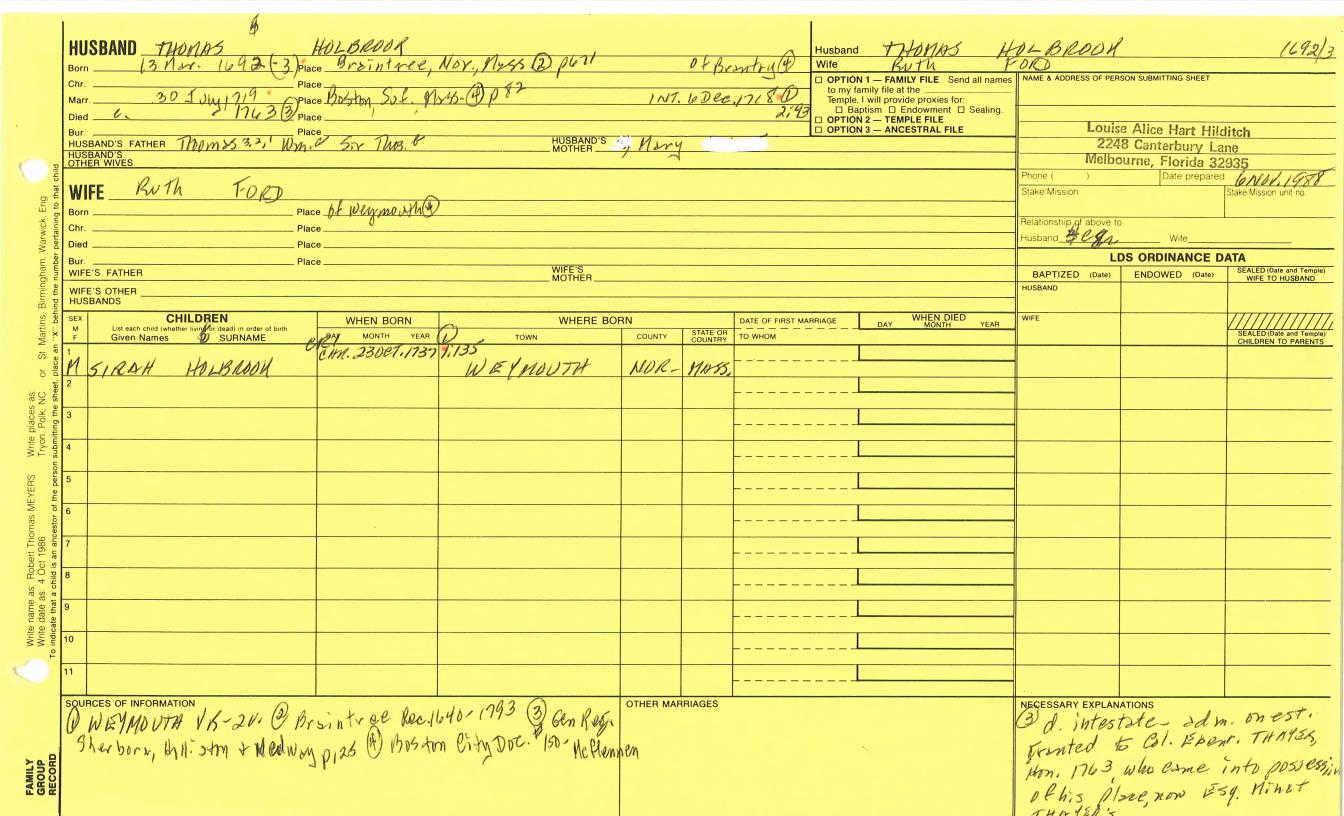 HUSBAND THOMAS HOLBROOK
Born 13 Mar. 1692(-3) Place Braintree, Nor., Mass (2) p671 of Brantry (4)
Chr. Place
Marr. 30 July 1719 Place Boston, Suf. Mass- (4) p 82 INT. 6 Dec. 1718 (1)
Died c. 1763 (3) Place 2:93
Bur. Place
HUSBAND'S FATHER Thomas 3,2,1 Wm. Sir Thos. HUSBAND'S MOTHER Mary
HUSBAND'S OTHER WIVES
WIFE Ruth FORD
Born Place of Weymouth (4)
Chr. Place
Died Place
Bur. Place
WIFE'S FATHER WIFE'S MOTHER
WIFE'S OTHER HUSBANDS
Husband THOMAS HOLBROOK 1692/3
Wife Ruth FORD
☐ OPTION 1 — FAMILY FILE Send all names
to my family file at the
Temple. I will provide proxies for:
☐ Baptism ☐ Endowment ☐ Sealing.
☐ OPTION 2 — TEMPLE FILE
☐ OPTION 3 — ANCESTRAL FILE
NAME & ADDRESS OF PERSON SUBMITTING SHEET
Louise Alice Hart Hilditch
2248 Canterbury Lane
Melbourne, Florida 32935
Phone ( ) Date prepared 6 Nov. 1988
Stake/Mission Stake/Mission unit no.
Relationship of above to
Husband Wife
LDS ORDINANCE DATA
BAPTIZED (Date) ENDOWED (Date) SEALED (Date and Temple) WIFE TO HUSBAND
HUSBAND
WIFE
SEALED (Date and Temple) CHILDREN TO PARENTS
SEX M F
CHILDREN
List each child (whether living or dead) in order of birth
Given Names SURNAME
WHEN BORN
DAY MONTH YEAR
WHERE BORN
TOWN COUNTY STATE OR COUNTRY
DATE OF FIRST MARRIAGE
TO WHOM
WHEN DIED
DAY MONTH YEAR
1 CHR. 23 OCT. 1737 (1) 1:135
M SIRAH HOLBROOK WEYMOUTH NOR- MASS.
2
3
4
5
6
7
8
9
10
11
SOURCES OF INFORMATION
(1) WEYMOUTH VR-2V. (2) Braintree Rec. 1640-1793 (3) Gen Reg.
Sherborn, Holliston & Medway p,125 (4) Boston City Doc. #150- McGlennen
OTHER MARRIAGES
NECESSARY EXPLANATIONS
(3) d. intestate- adm. on est.
granted to Col. Ebenr. THAYER,
Hon. 1763, who came into possession
of his place, now Esq. Minot
THAYER'S
Write name as: Robert Thomas MEYERS Write places as: Tryon, Polk, NC or St. Martins, Birmingham, Warwick, Eng
Write date as: 4 Oct 1986
To indicate that a child is an ancestor of the person submitting the sheet, place an "X" behind the number pertaining to that child
FAMILY
GROUP
RECORD